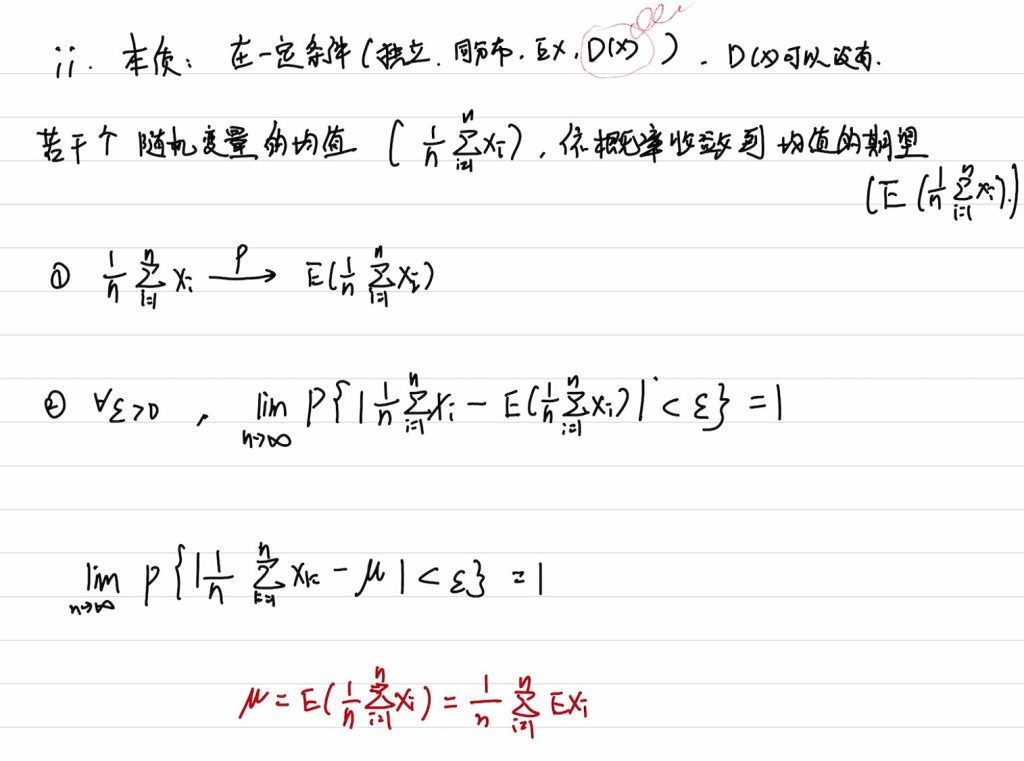 ii. 本质: 在一定条件(独立. 同分布. EX. D(X)). D(X)可以没有.
若干个 随机变量的均值 ( 1/n ∑_{i=1}^{n} Xi ), 依概率收敛到 均值的期望
(E (1/n ∑_{i=1}^{n} Xi).)
① 1/n ∑_{i=1}^{n} Xi —P→ E(1/n ∑_{i=1}^{n} Xi)
② ∀ε>0 , lim_{n→∞} P{ | 1/n ∑_{i=1}^{n} Xi − E(1/n ∑_{i=1}^{n} Xi) | < ε} = 1
lim_{n→∞} P { | 1/n ∑_{k=1}^{n} Xk − μ | < ε} = 1
μ = E(1/n ∑_{i=1}^{n} Xi) = 1/n ∑_{i=1}^{n} EXi